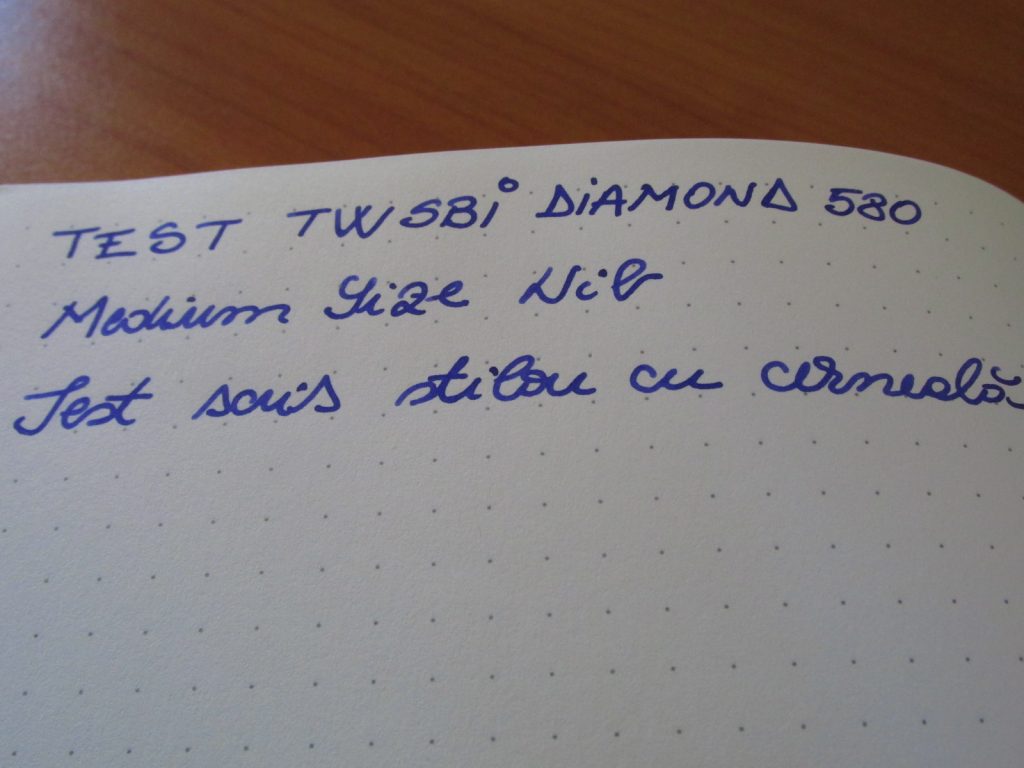 TEST TWSBi DiAMOND 580
Medium Size Nib
Test scris stilou cu cerneală